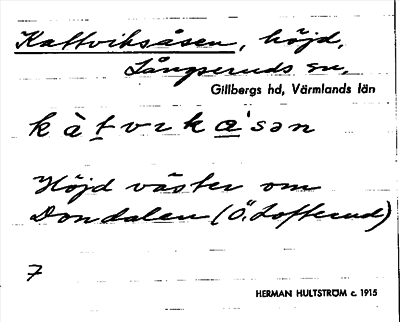 Kattviksåsen, höjd,
Långseruds sn,
Gillbergs hd, Värmlands län
kàtvıka'sən
Höjd väster om
Dondalen (Ö. Lofterud)
7
HERMAN HULTSTRÖM c. 1915